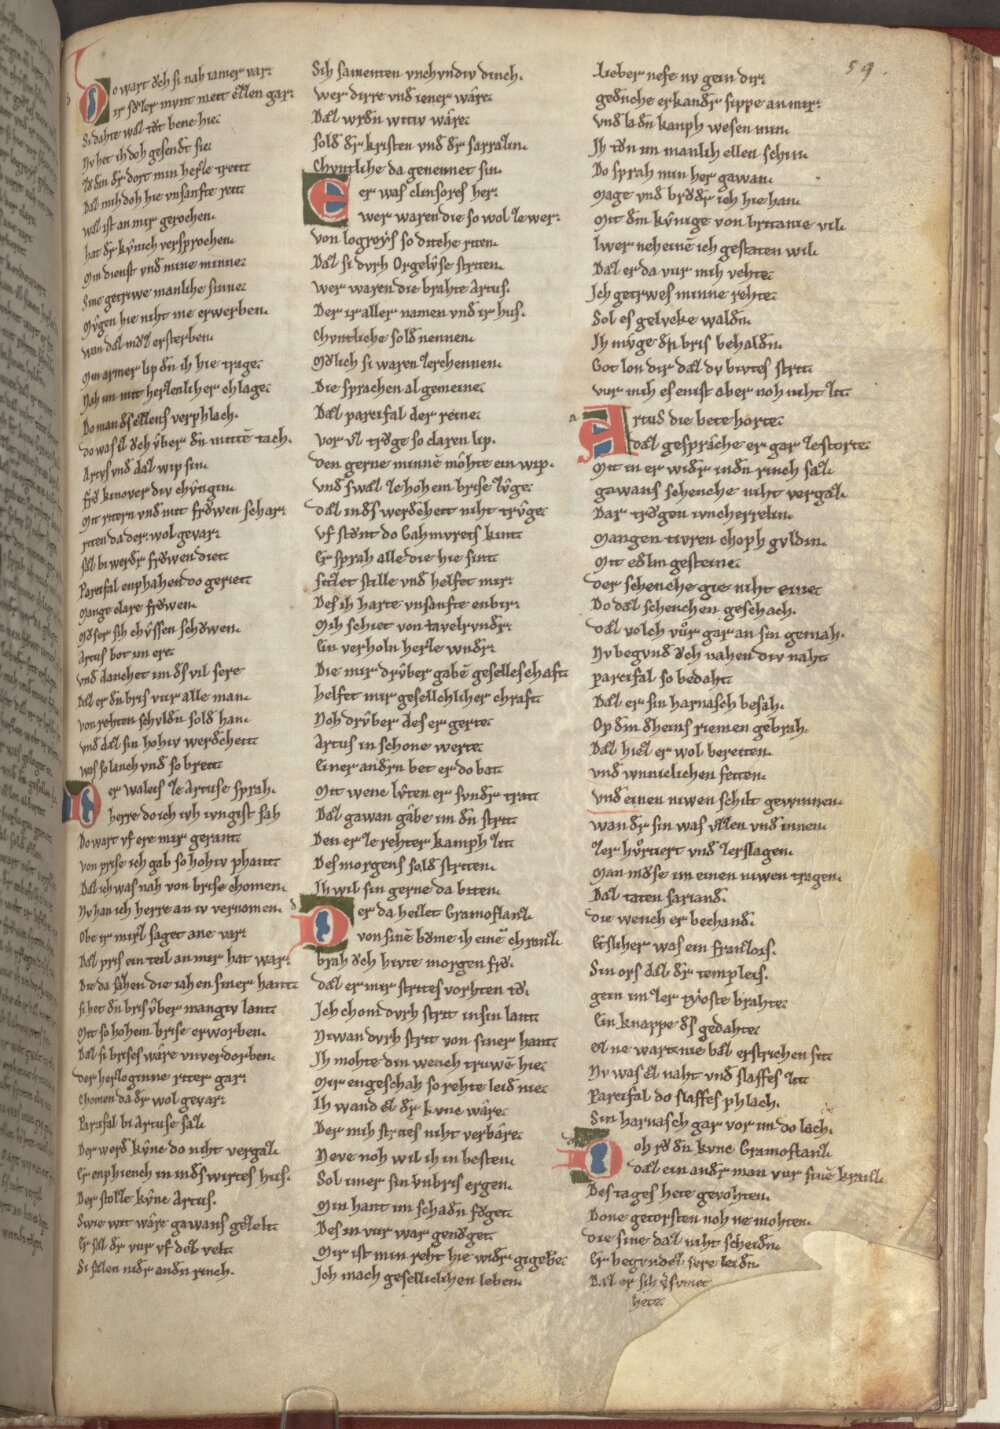 59.
Do wart ŏch si nah iamer var:
ir sŏler mynt mett ellen gar:
Si dahte wal tŏt bene hie:
Nv het ih doh gesendt sie:
dort min herze trett:
Dal mih doh hie vnsanfte rett:
wal ist an mir gerochen.
hat dr kv̂nich versprochen.
Min dienst vnd mine minne:
Sine getriwe manliche sinne:
Mv̂gen hie niht me erwerben.
wan dal mŏz ersterben.
Min armer lip dn ih hie trage:
Noh im mit herzenlicher chlage:
Do man ds ellens verphlach.
do was iz ŏch v̂ber dn mitten tach.
Artvs vnd dal wip sin.
frŏ kinover div chv̂ngin.
Mit rittern vnd mit frŏwen schar:
riten da der wol gevar:
saz bi werdr frŏwen diet:
Parcifal enphahen do geriet:
Mange clare frŏwen.
Mŏser sih chv̂ssen schŏwen.
Artus bot im ere:
vnd danchet im ds vil sere
Dal er dn bris vur alle man.
von rehten schvldn sold han.
vnd dal sin hohiv werdcheit:
was so lanch vnd so breit:
Der waleis ze Artuse sprah.
herre do ich iwh ivngist sah
Do wart vf ere mir gerant:
von prise ich gab so hohiv phant:
Dal ich was nah von brise chomen.
Nv han ich herre an iv vernomen.
Obe ir mirz saget ane var:
Dal pris ein teil an mir hat war:
Die da sahen die iahen siner hant:
si het dn bris v̂ber mangiv lant:
Mit so hohem brise erworben.
Dal si brises wâre vnverdorben.
der herzoginne riter gar:
chomen da dr wol gevar:
Parcifal bi Artuse saz.
Der werd kv̂ne do niht vergaz.
Er enphiench in inds wirtes hus.
Der stolze kv̂ne Artus.
Swie wit wâre gawans gezelt:
Er saz dr vur vf daz velt:
Si sazen nidr andn rinch.
Sih samenten vnchvndiv dinch.
wer dirre vnd iener wâre:
Dal wrdn witiv wâre:
Sold dr kristen vnd dr sarrazin.
Chvntliche da genennet sin.
Wer was clinsores her:
wer waren die so wol ze wer:
von logroys so diche riten.
Dal si dvrh Orgelv̂se striten.
wer waren die brahte Artus.
Der ir aller namen vnd ir hus.
Chvntliche sold nennen.
Mŏlich si waren zerchennen.
Die sprachen al gemeine:
Dal parcifal der reine:
vor vz trŏge so claren lip.
den gerne minnē mŏhte ein wip.
vnd swaz ze hohem brise zv̂ge:
dal inds werdcheit niht trv̂ge:
vf stŏnt do Gahmvrets kint:
Er sprah alle die hie sint:
sitzet stille vnd helfet mir:
Des ih harte vnsanfte enbir:
Mih schiet von tavelrvndr:
Ein verholn herze wndr:
Die mir drv̂ber gabē geselleschaft:
helfet mir gesellchlicher chraft:
Noh drv̂ber des er gerte:
Artus in schone werte:
Einer andrn bet er do bat:
Mit wene lv̂ten er svndr trat:
Dal gawan gâbe im dn strit:
Den er ze rehter kamph zit:
Des morgens sold striten.
Ih wil sin gerne da biten.
Der da heizet Gramoflanz.
von sinē bŏme ih einē chranz.
brah ŏch hivte morgen frŏ.
dal er mir strites vorhten tŏ.
Ich chom dvrh strit in sin lant:
Niwan dvrh strit von siner hant:
Ih mohte din wench truwē hie:
Mir engeschah so rehte leid nie:
Ih wand ez dr kvne wâre:
Der mih strites niht verbâre:
Neve noh wil ih in besten.
Sol imer sin vnbris ergen.
Min hant im schadn fŏget:
Des in vur war genŏget.
Mir ist min reht hie widr gigebē:
Ich mach gesellichen leben.
Lieber nefe nv gein dir:
gedenche erkandr sippe an mir:
vnd la dn kanph wesen min.
Ih tŏn im manlich ellen schin.
Do sprah min her gawan.
Mage vnd brŏdr ich hie han.
Mit dm kv̂nige von britanie vil.
Iwer neheinē ich gestaten wil.
Dal er da vur mih vehte:
Ich getrwes minne rehte:
Sol es gelvcke waldn.
Ih mv̂ge dn bris behaldn.
Got lon dir dal dv bivtes strit:
vur mih es enist aber noh niht zit:
Artus die bete horte:
dal gesprâche er gar zestorte:
Mit in er widr indn rinch saz.
gawans schenche niht vergaz.
Dar trŏgen ivncherrelin.
Mangen tivren choph gvldin.
Mit edlm gesteine:
der schenche gie niht eine:
Do dal schenchen geschach.
dal volch vůr gar an sin gemah.
Nv begvnd ŏch nahen div naht:
parcifal so bedaht:
Dal er sin harnasch besah.
Op dm dheins riemen gebrah.
Dal hiez er wol bereiten.
vnd wnnichlichen feiten.
vnd einen niwen schilt gewinnen.
wan dr sin was vzzen vnd innen.
zer hůrtiert vnd zerslagen.
Man mŏse im einen niwen tragen.
Dal taten sariand.
die wench er bechand.
Etslicher was ein franzois.
Sin ors daz dr templeis.
gein im zer tyoste brahte:
Ein knappe ds gedahte:
ez ne wart nie baz erstrichen sit:
Nv was ez naht vnd slaffes zit:
Parcifal do slaffes phlach.
Sin harnasch gar vor im do lach.
Doh rŏ dn kvne Gramoflanz.
dal ein andr man vur sinē kranz.
Des tages hete gevohten.
Done getorsten noh ne mohten.
die sine dal niht scheidn.
Er begvndez sere leidn.
Dal er sih v̂svmet
hete: